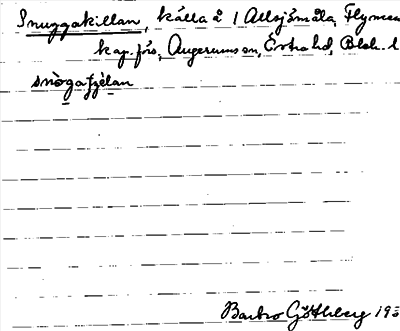 Snuggakillan, källa å 1 Allsjömåla, Flymen
kap.förs, Augerums sn, Östra hd, Blek. l
snògafjèlan
Barbro Götheberg 193